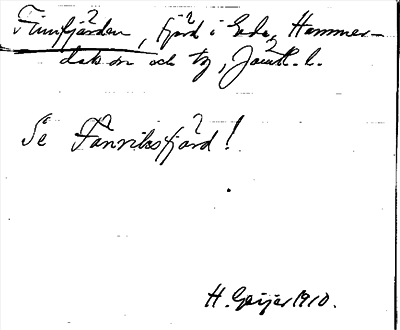 Finnfjärden, fjärd i Ede, Hammer-
dals sn och tg, Jämtl. l.
Se Fänriksfjärd!
H. Geijer 1910.